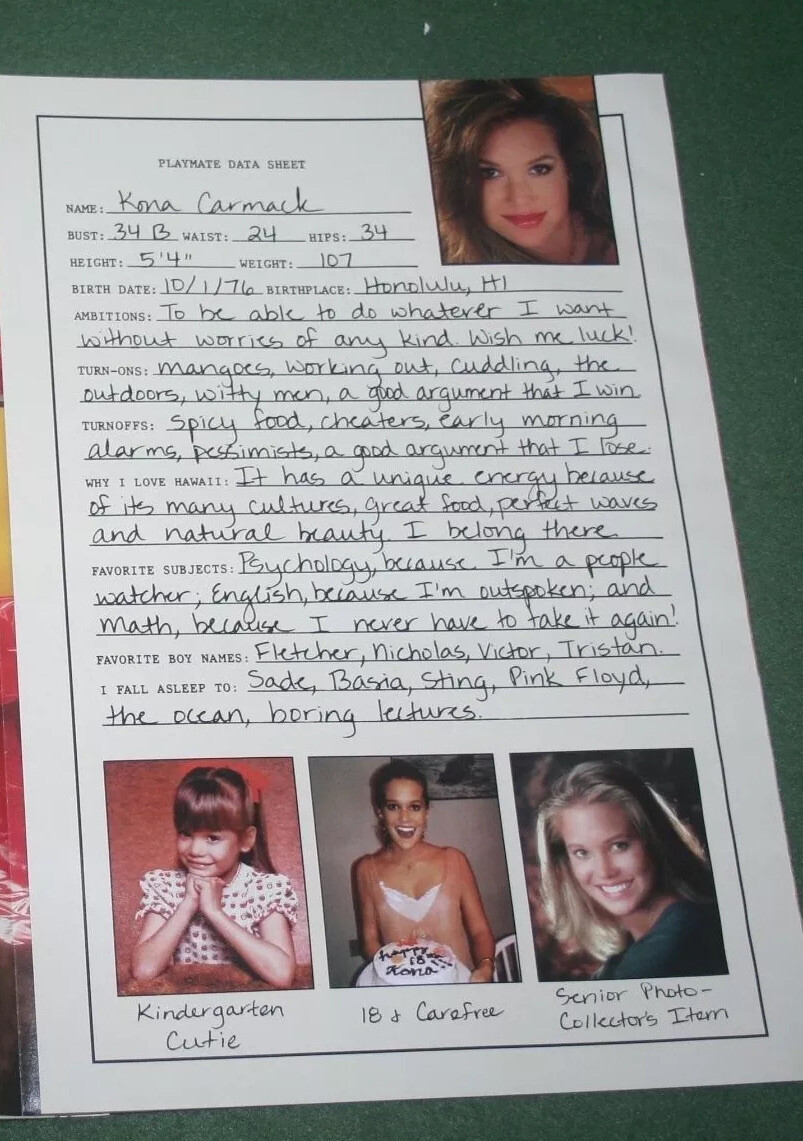 PLAYMATE DATA SHEET
NAME: Kona Carmack
BUST: 34 B WAIST: 24 HIPS: 34
HEIGHT: 5'4" WEIGHT: 107
BIRTH DATE: 10/1/76 BIRTHPLACE: Honolulu, HI
AMBITIONS: To be able to do whatever I want
without worries of any kind. Wish me luck!
TURN-ONS: mangoes, working out, cuddling, the
outdoors, witty men, a good argument that I win
TURNOFFS: spicy food, cheaters, early morning
alarms, pessimists, a good argument that I lose.
WHY I LOVE HAWAII: It has a unique energy because
of its many cultures, great food, perfect waves
and natural beauty. I belong there.
FAVORITE SUBJECTS: Psychology, because I'm a people
watcher; English, because I'm outspoken; and
math, because I never have to take it again!
FAVORITE BOY NAMES: Fletcher, Nicholas, Victor, Tristan.
I FALL ASLEEP TO: Sade, Basia, Sting, Pink Floyd,
the ocean, boring lectures.
happy
18
Kona
Kindergarten
Cutie
18 & Carefree
Senior Photo-
Collector's Item